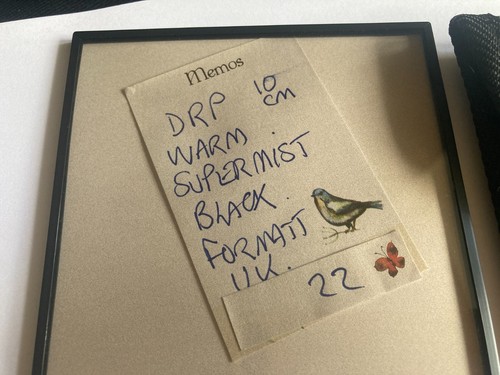 Memos
DRP 10 cm
WARM
SUPERMIST
BLACK.
FORMATT
UK.
22